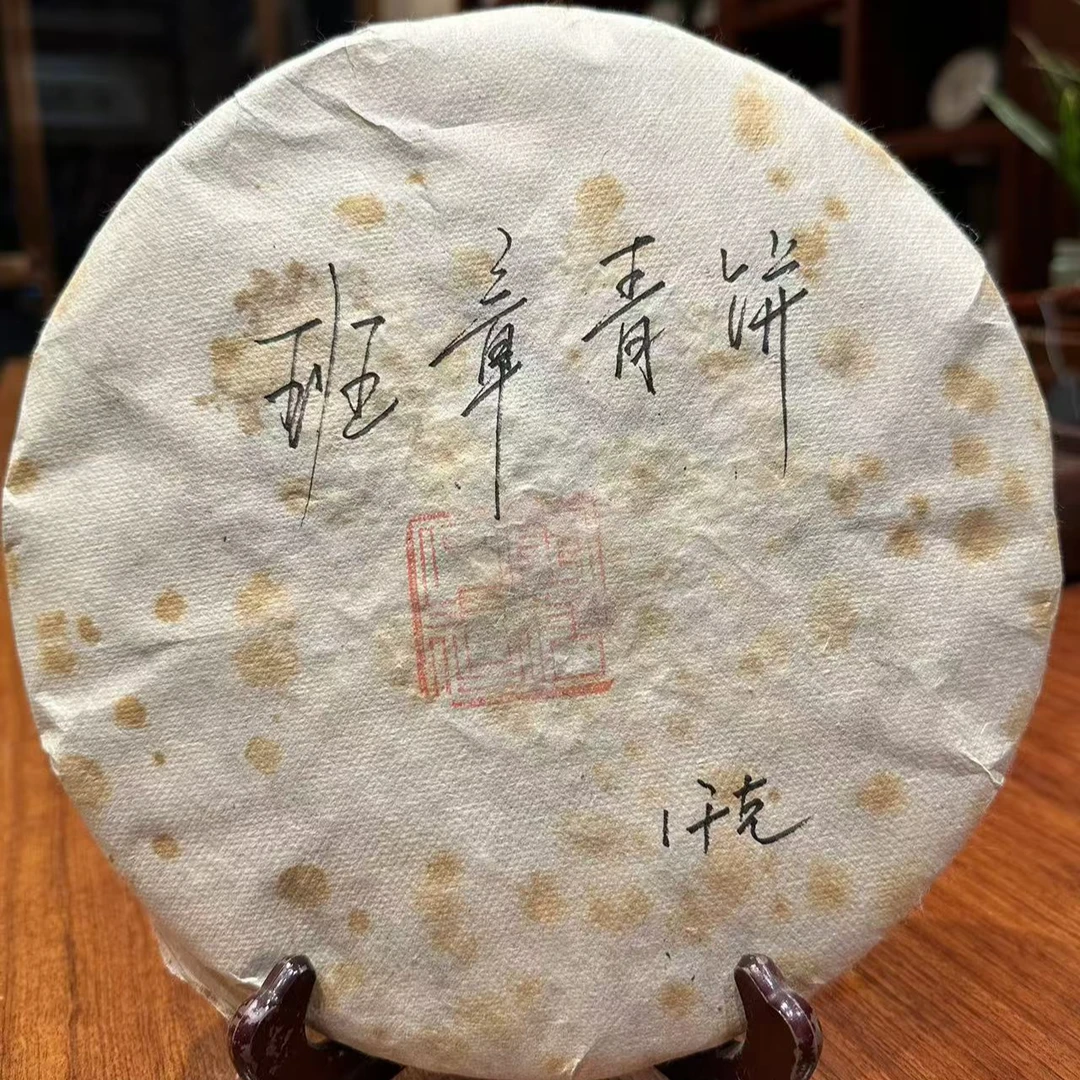 班章青饼
1千克